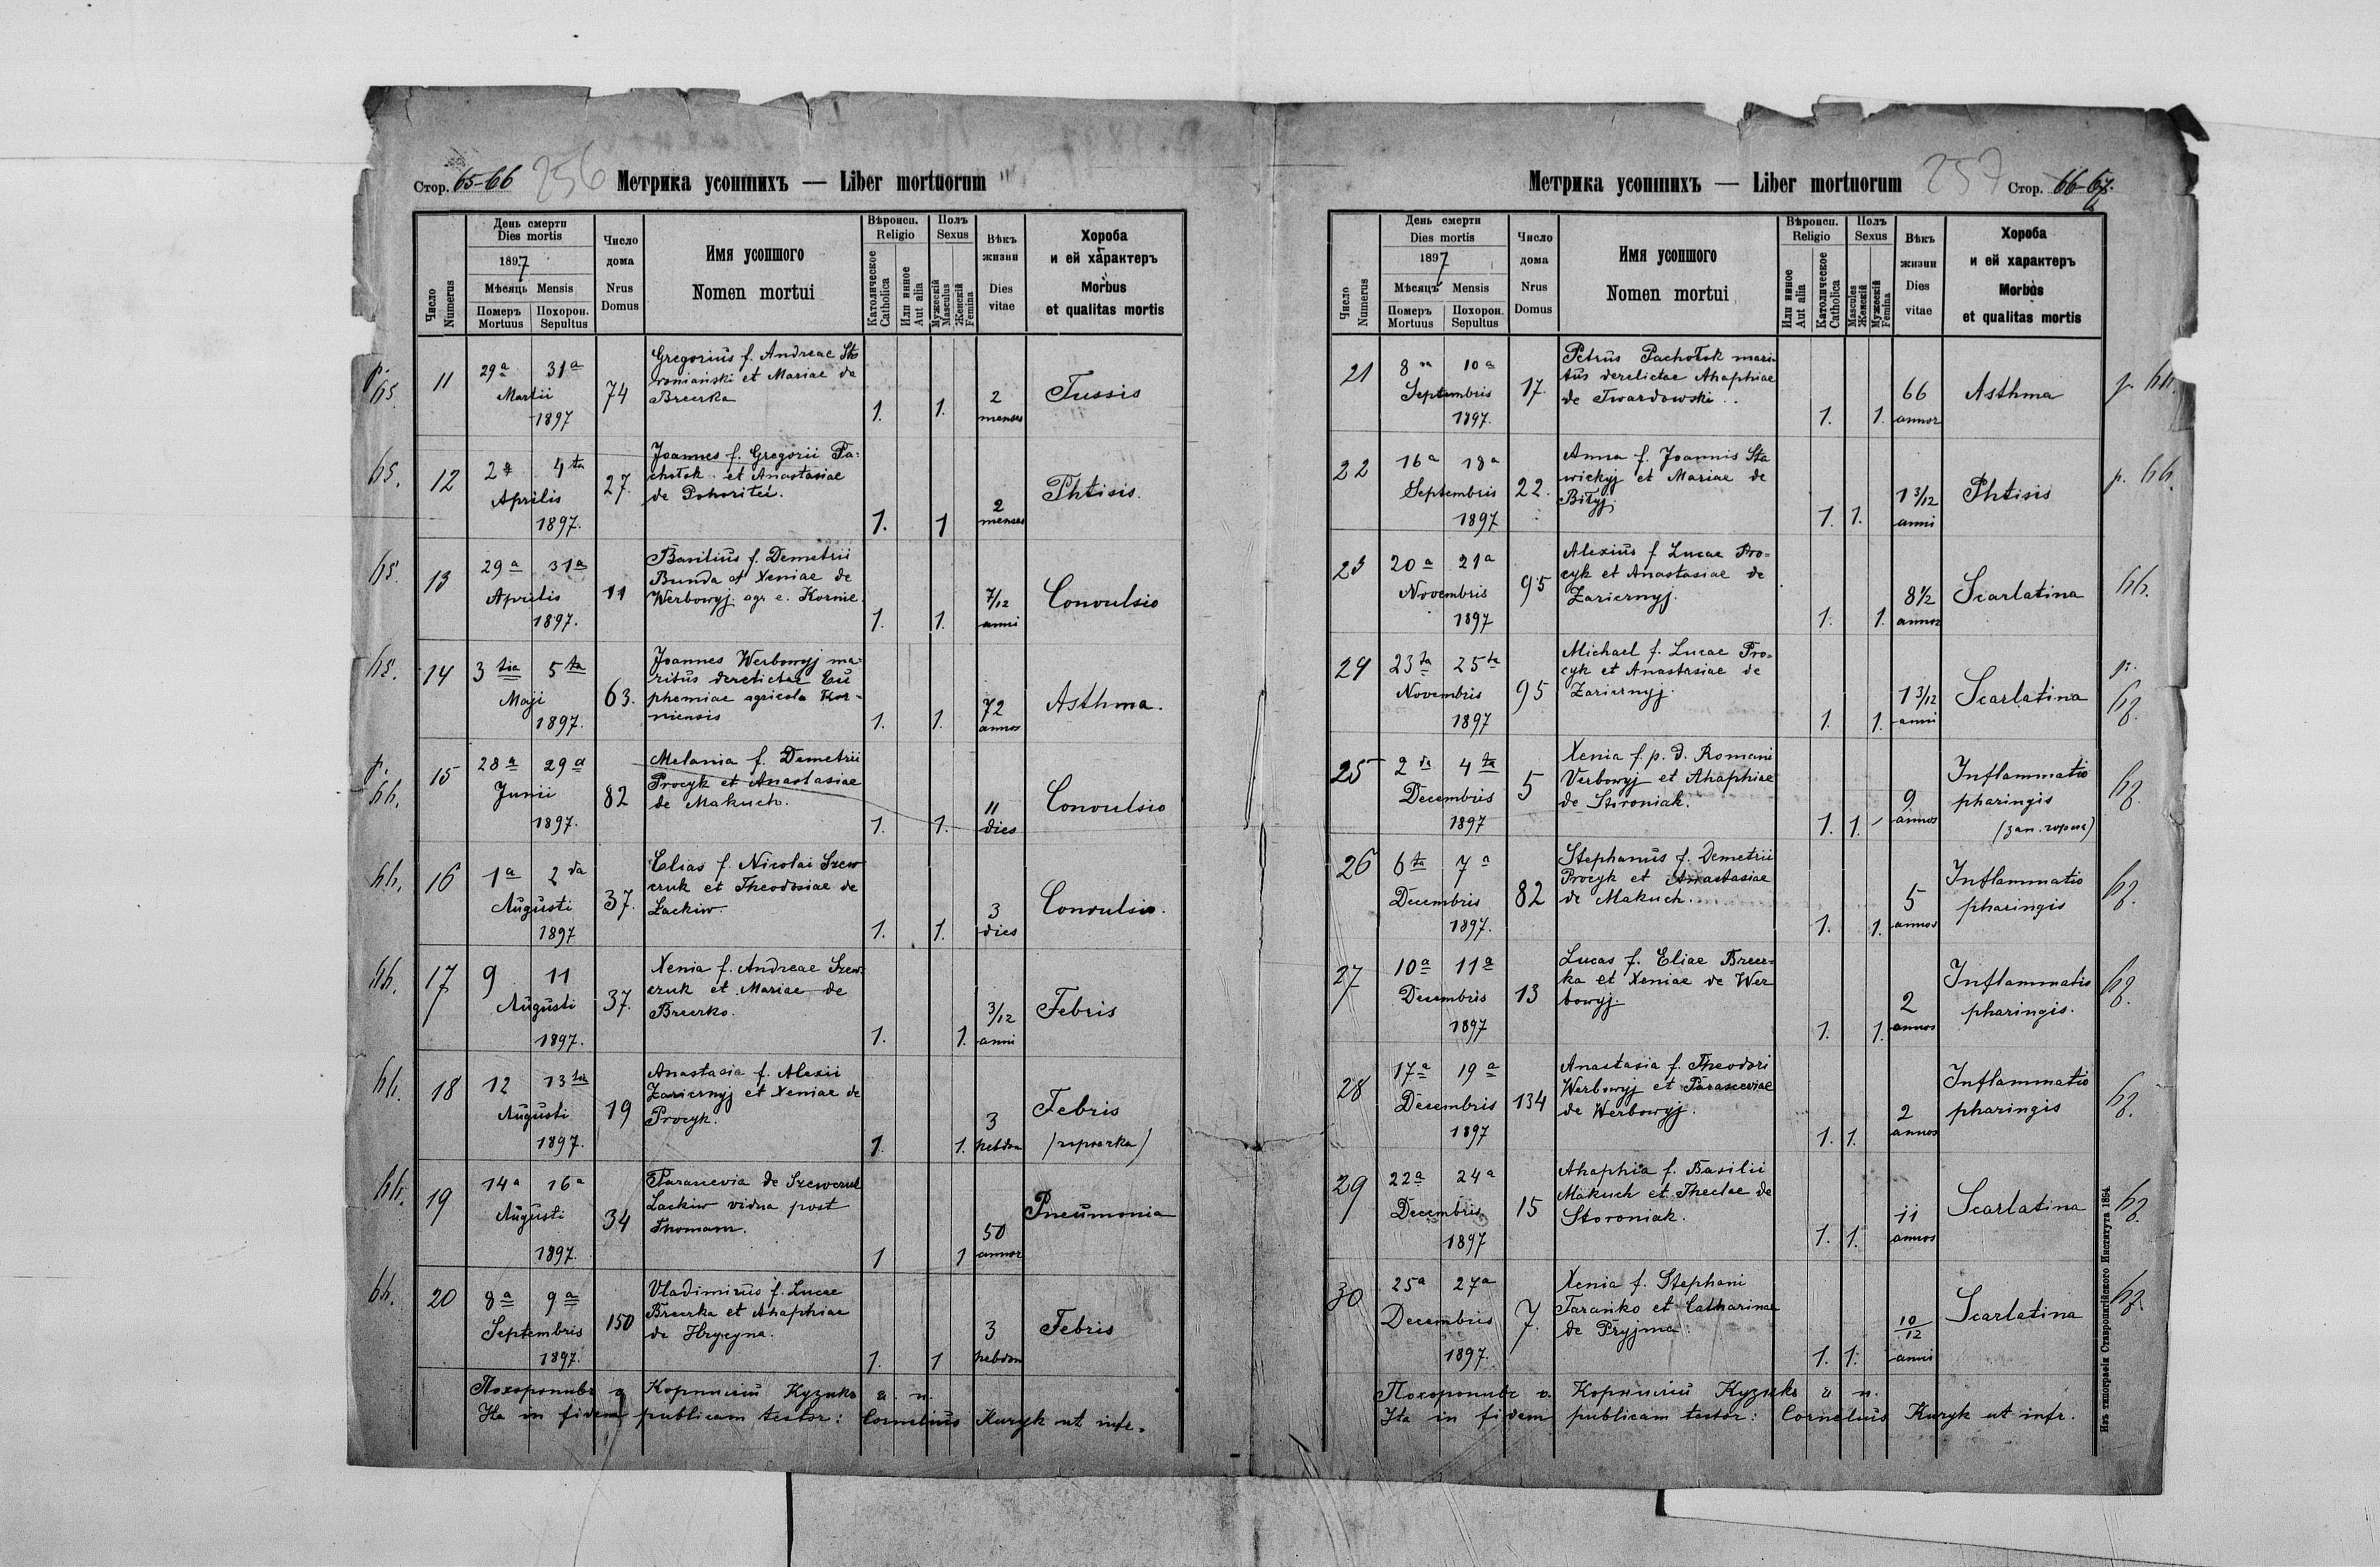 Стор. 65-66 256 Метрика усопшихъ — Liber mortuorum
Число Numerus
День смерти
Dies mortis
1897
Мѣсяць Mensis
Померъ Mortuus
Похорон. Sepultus
Число дома
Nrus Domus
Имя усопшого
Nomen mortui
Вѣроисп.
Religio
Католическое Catholica
Или инное Aut alia
Полъ
Sexus
Мужескій Masculus
Женскій Femina
Вѣкъ жизни
Dies vitae
Хороба
и ей характеръ
Morbus
et qualitas mortis
p. 65
11 29a 31a Martii 1897 74
Gregorius f. Andreae Sto
roniański et Mariae de
Breerka
1. 1. 2 menses Tussis
65. 12 2 4ta Aprilis 1897. 27.
Joannes f. Gregorii Pa-
chołok et Anastasiae
de Pohoriteć.
1. 1 2 menses Phtisis.
65. 13 29a 31a Aprilis 1897. 11
Basilius f. Demetrii
Bunda et Xeniae de
Werbowyj agr e. Kornie.
1. 1. 7/12 anni Convulsio
65. 14 3tia 5ta Maji 1897. 63.
Joannes Werbowyj ma-
ritus derelictae Eu
phemiae agricola Kor-
niensis
1. 1. 72 annos Asthma.
p. 66. 15 28a 29a Junii 1897. 82
Melania f. Demetrii
Procyk et Anastasiae
de Makuch.
1. 1. 11 dies Convulsio
66. 16 1a 2da Augusti 1897 37.
Elias f. Nicolai Szew
czuk et Theodosiae de
Łackiw.
1. 1. 3 dies Convulsio.
66. 17 9 11 Augusti 1897. 37.
Xenia f. Andreae Szew-
czuk et Mariae de
Breerko.
1. 1. 3/12 anni Febris
66. 18 12 13tia Augusti 1897. 19
Anastasia f. Alexii
Zariernyj et Xeniae de
Procyk.
1. 1. 3 hebdom Febris
66. 19 14a 16a Augusti 1897. 34
Parascevia de Szewczuk
Lackiw vidua post
Thomam.
1 1 50 annor Pneumonia
66. 20 8a 9a Septembris 1897. 150
Vladimirus f. Lucae
Breerka et Ahaphiae
de Hrycyna.
1. 1 3 hebdom Febris
Похоронивъ о. Корнилій Кузыкъ
Ita in fidem publicam testor: Cornelius Kuzyk ut infr.
Метрика усопшихъ — Liber mortuorum 257 Стор. 66-67.
Число Numerus
День смерти
Dies mortis
1897
Мѣсяцъ Mensis
Померъ Mortuus
Похорон. Sepultus
Число дома
Nrus Domus
Имя усопшого
Nomen mortui
Вѣроисп.
Religio
Или инное Aut alia
Католическое Catholica
Полъ
Sexus
Masculus Женскій
Мужескій Femina
Вѣкъ жизни
Dies vitae
Хороба
и ей характеръ
Morbus
et qualitas mortis
21 8a 10a Septembris 1897. 17.
Petrus Pachołok mari-
tus derelictae Ahaphiae
de Twardowski.
1. 1. 66 annor Asthma p. 66.
22 16a 18a Septembris 1897 22.
Anna f. Joannis Sta
wickyj et Mariae de
Biłyj.
1. 1. 1 3/12 anni Phtisis p. 66.
23 20a 21a Novembris 1897 95
Alexius f. Lucae Pro-
cyk et Anastasiae de
Zariernyj.
1. 1. 8 1/2 annor Scarlatina 66.
24 23ta 25ta Novembris 1897 95
Michael f. Lucae Pro-
cyk et Anastasiae de
Zariernyj.
1. 1. 1 3/12 anni Scarlatina p. 67.
25 2da 4ta Decembris 1897 5
Xenia f. p. d. Romani
Verbowyj et Ahaphiae
de Storoniak.
1. 1. 9 annos Inflammatio
pharingis
67.
26 6ta 7a Decembris 1897. 82
Stephanus f. Demetrii
Procyk et Anastasiae
de Makuch.
1. 1. 5 annos Inflammatio
pharingis
67.
27 10a 11a Decembris 1897 13
Lucas f. Eliae Breer-
ka et Xeniae de Wer
bowyj.
1. 1. 2 annos Inflammatio
pharingis.
67.
28 17a 19a Decembris 1897 134
Anastasia f. Theodori
Werbowyj et Parasceviae
de Werbowyj.
1. 1. 2 annos Inflammatio
pharingis
67.
29 22a 24a Decembris 1897 15
Ahaphia f. Basilii
Makuch et Theclae de
Storoniak.
1. 1. 11 annos Scarlatina 67.
30 25a 27a Decembris 1897. 7.
Xenia f. Stephani
Tarańko et Catharinae
de Pryjma.
1. 1. 10/12 anni Scarlatina 67.
Похоронивъ о. Корнилій Кузыкъ
Ita in fidem publicam testor: Cornelius Kuzyk ut infr.
Изъ типографіи Ставропигійского Института 1894.